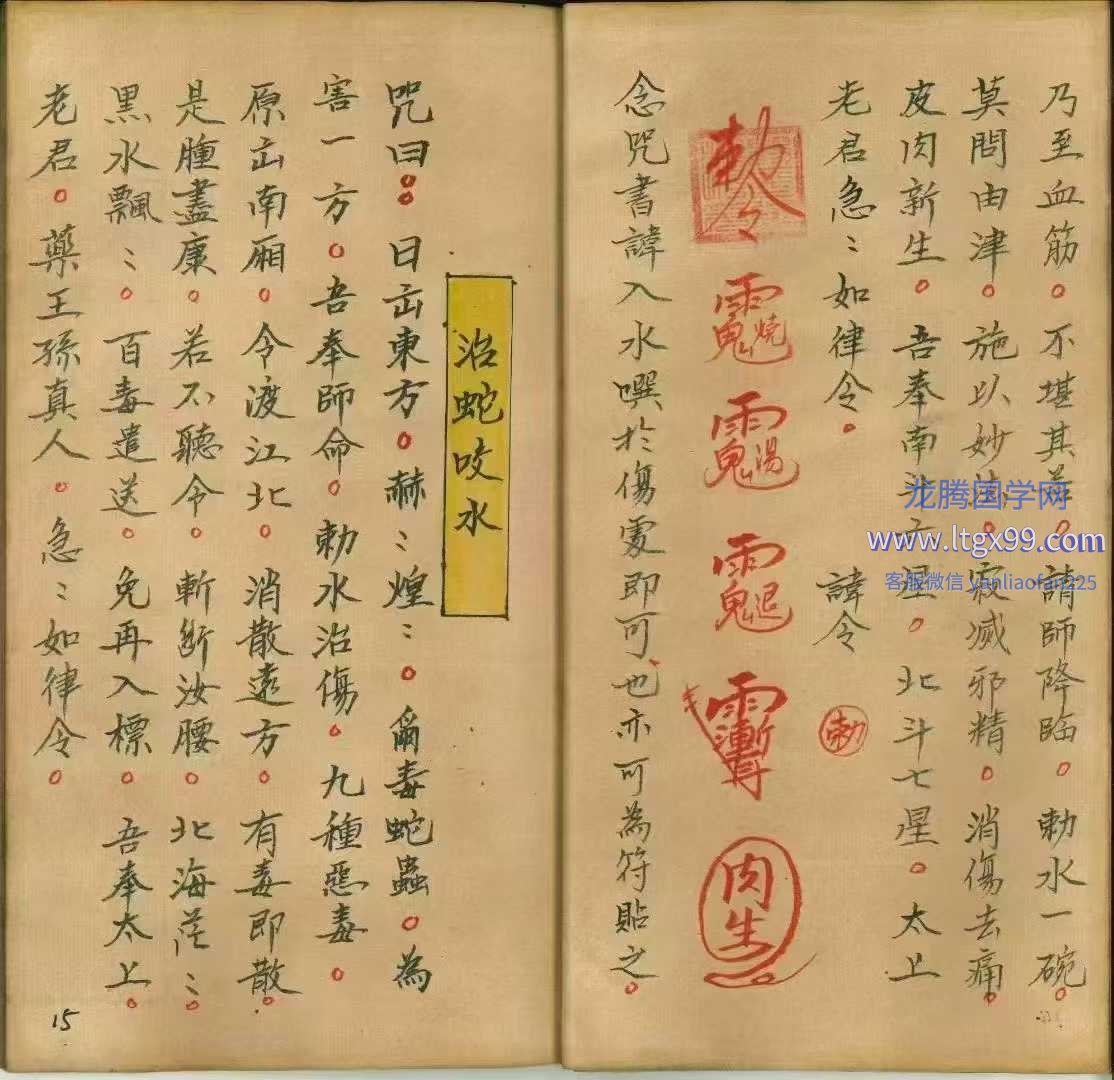 乃至血筋。不堪其苦。請師降臨。勅水一碗。
莫問由津。施以妙法。寂滅邪精。消傷去痛。
皮肉新生。吾奉南斗六星。北斗七星。太上
老君急〻如律令。 諱令 勅
勅令
肉生
念咒書諱入水噀於傷處即可也亦可為符貼之。
治蛇咬水
咒曰。日出東方。赫〻煌〻。爾毒蛇蟲。為
害一方。吾奉師命。勅水治傷。九種惡毒。
原出南廂。令渡江北。消散遠方。有毒即散。
是腫盡康。若不聽令。斬斷汝腰。北海茫〻。
黑水飄〻。百毒遣送。免再入標。吾奉太上。
老君。藥王孫真人。急〻如律令。
15
龙腾国学网
www.ltgx99.com
客服微信 yanliaofan225